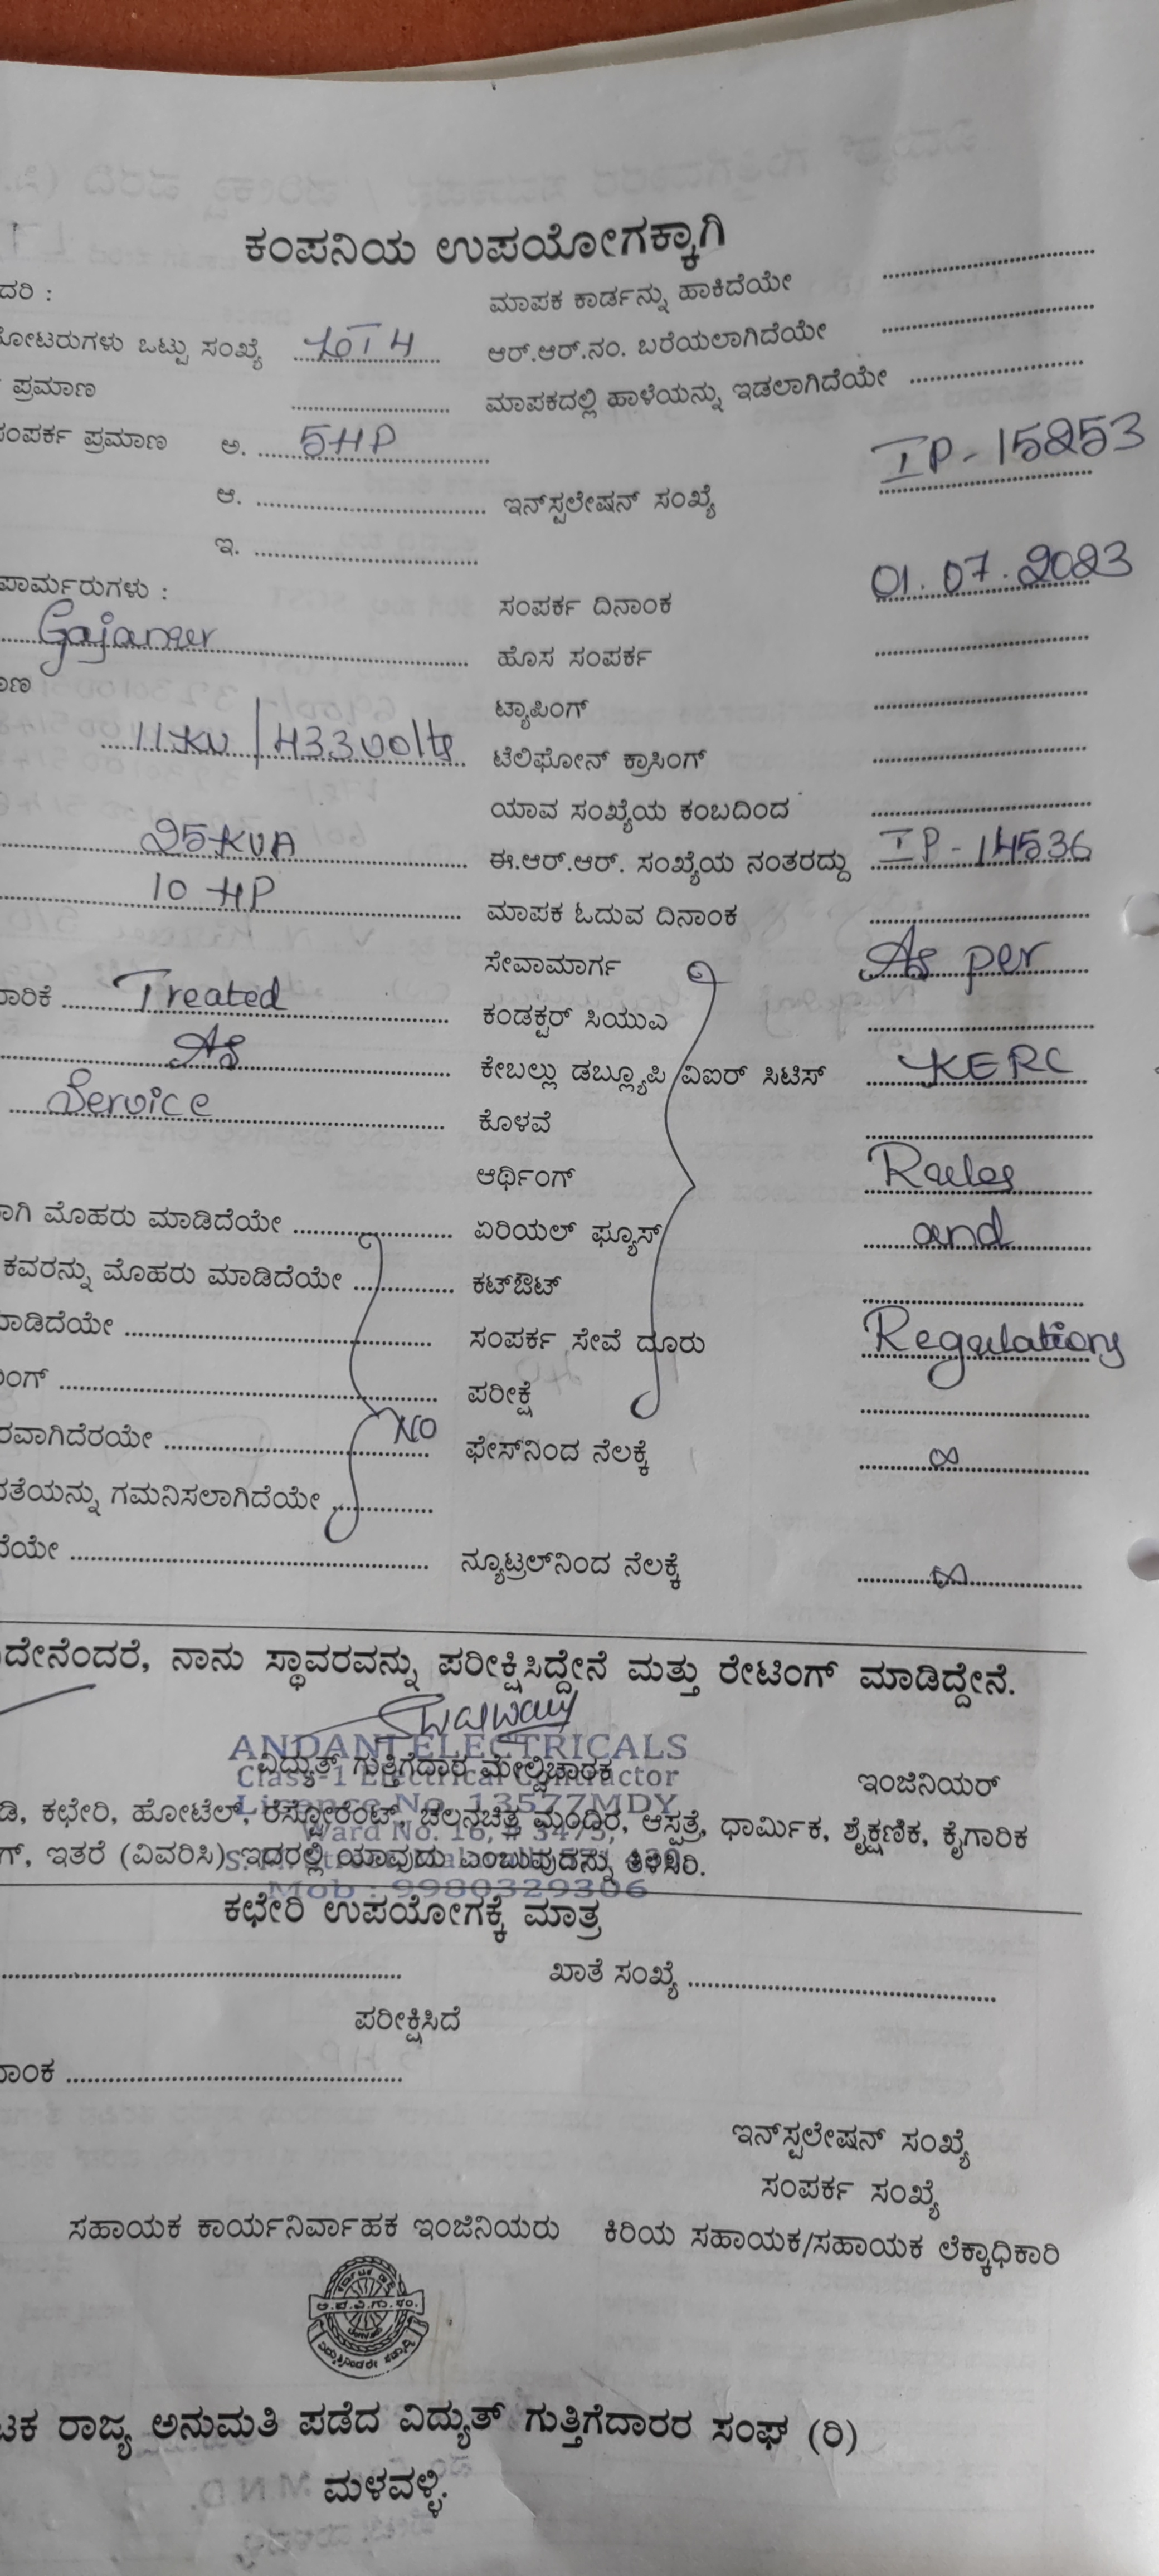 ಕಂಪನಿಯ ಉಪಯೋಗಕ್ಕಾಗಿ
ದರಿ : ಮಾಪಕ ಕಾರ್ಡನ್ನು ಹಾಕಿದೆಯೇ
ೋಟರುಗಳು ಒಟ್ಟು ಸಂಖ್ಯೆ ಆರ್.ಆರ್.ನಂ. ಬರೆಯಲಾಗಿದೆಯೇ
ಪ್ರಮಾಣ ಮಾಪಕದಲ್ಲಿ ಹಾಳೆಯನ್ನು ಇಡಲಾಗಿದೆಯೇ
ಸಂಪರ್ಕ ಪ್ರಮಾಣ ಅ. 5HP
ಆ. ಇನ್‌ಸ್ಟಲೇಷನ್ ಸಂಖ್ಯೆ IP-15253
ಇ.
ಪಾರ್ಮರುಗಳು : ಸಂಪರ್ಕ ದಿನಾಂಕ 01.07.2023
ಹೊಸ ಸಂಪರ್ಕ
ಟ್ಯಾಪಿಂಗ್
11KV / 433 volts ಟೆಲಿಫೋನ್ ಕ್ರಾಸಿಂಗ್
ಯಾವ ಸಂಖ್ಯೆಯ ಕಂಬದಿಂದ
25 KVA ಈ.ಆರ್.ಆರ್. ಸಂಖ್ಯೆಯ ನಂತರದ್ದು IP-14536
10 HP ಮಾಪಕ ಓದುವ ದಿನಾಂಕ
ಸೇವಾಮಾರ್ಗ As per
ಾರಿಕೆ Treated ಕಂಡಕ್ಟರ್ ಸಿಯುಎ
As ಕೇಬಲ್ಲು ಡಬ್ಲ್ಯೂಪಿ/ವಿಐರ್ ಸಿಟಿಸ್ KERC
Service ಕೊಳವೆ
ಆರ್ಥಿಂಗ್ Rules
ಾಗಿ ಮೊಹರು ಮಾಡಿದೆಯೇ ಏರಿಯಲ್ ಫ್ಯೂಸ್ and
ಕವರನ್ನು ಮೊಹರು ಮಾಡಿದೆಯೇ ಕಟ್‌ಔಟ್
ಮಾಡಿದೆಯೇ ಸಂಪರ್ಕ ಸೇವೆ ದೂರು Regulations
ಂಗ್ ಪರೀಕ್ಷೆ
ರವಾಗಿದೆರಯೇ NO ಫೇಸ್‌ನಿಂದ ನೆಲಕ್ಕೆ ∞
ತೆಯನ್ನು ಗಮನಿಸಲಾಗಿದೆಯೇ
ೆಯೇ ನ್ಯೂಟ್ರಲ್‌ನಿಂದ ನೆಲಕ್ಕೆ ∞
ದೇನೆಂದರೆ, ನಾನು ಸ್ಥಾವರವನ್ನು ಪರೀಕ್ಷಿಸಿದ್ದೇನೆ ಮತ್ತು ರೇಟಿಂಗ್ ಮಾಡಿದ್ದೇನೆ.
ANDANI ELECTRICALS
ವಿದ್ಯುತ್ ಗುತ್ತಿಗೆದಾರ ಮೇಲ್ವಿಚಾರಕ ಇಂಜಿನಿಯರ್
Class-1 Electrical Contractor
Licence No. 13577MDY
ಡಿ, ಕಛೇರಿ, ಹೋಟೆಲ್, ರೆಸ್ಟೋರೆಂಟ್, ಚಲನಚಿತ್ರ ಮಂದಿರ, ಆಸ್ಪತ್ರೆ, ಧಾರ್ಮಿಕ, ಶೈಕ್ಷಣಿಕ, ಕೈಗಾರಿಕ
Ward No. 16,
ಗ್, ಇತರೆ (ವಿವರಿಸಿ) ಇದರಲ್ಲಿ ಯಾವುದು ಎಂಬುವುದನ್ನು ತಿಳಿಸಿರಿ.
Mob : 9980329306
ಕಛೇರಿ ಉಪಯೋಗಕ್ಕೆ ಮಾತ್ರ
ಖಾತೆ ಸಂಖ್ಯೆ
ಪರೀಕ್ಷಿಸಿದೆ
ನಾಂಕ
ಇನ್‌ಸ್ಟಲೇಷನ್ ಸಂಖ್ಯೆ
ಸಂಪರ್ಕ ಸಂಖ್ಯೆ
ಸಹಾಯಕ ಕಾರ್ಯನಿರ್ವಾಹಕ ಇಂಜಿನಿಯರು ಕಿರಿಯ ಸಹಾಯಕ/ಸಹಾಯಕ ಲೆಕ್ಕಾಧಿಕಾರಿ
ಟಕ ರಾಜ್ಯ ಅನುಮತಿ ಪಡೆದ ವಿದ್ಯುತ್ ಗುತ್ತಿಗೆದಾರರ ಸಂಘ (ರಿ)
ಮಳವಳ್ಳಿ.